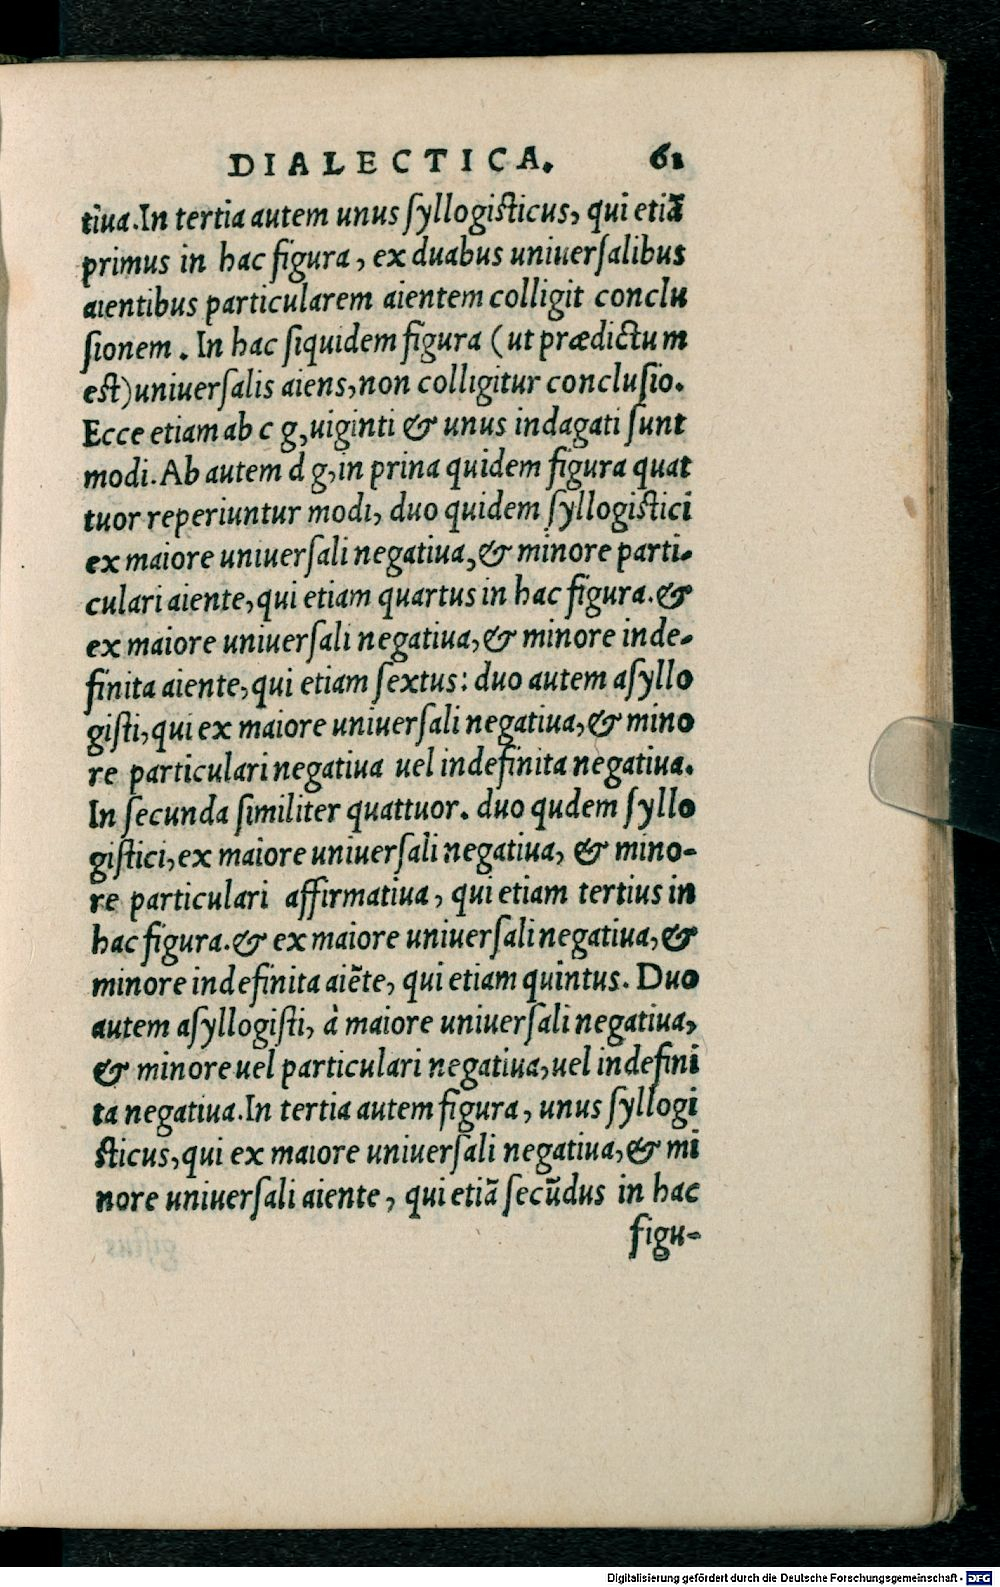 DIALECTICA. 61
tiua. In tertia autem unus syllogisticus, qui etiã
primus in hac figura, ex duabus uniuersalibus
aientibus particularem aientem colligit conclu
sionem. In hac siquidem figura (ut prædictum
est) uniuersalis aiens, non colligitur conclusio.
Ecce etiam ab c g, uiginti & unus indagati sunt
modi. Ab autem d g, in prina quidem figura quat
tuor reperiuntur modi, duo quidem syllogistici
ex maiore uniuersali negatiua, & minore parti-
culari aiente, qui etiam quartus in hac figura. &
ex maiore uniuersali negatiua, & minore inde-
finita aiente, qui etiam sextus: duo autem asyllo
gisti, qui ex maiore uniuersali negatiua, & mino
re particulari negatiua uel indefinita negatiua.
In secunda similiter quattuor. duo qudem syllo
gistici, ex maiore uniuersali negatiua, & mino-
re particulari affirmatiua, qui etiam tertius in
hac figura. & ex maiore uniuersali negatiua, &
minore indefinita aiẽte, qui etiam quintus. Duo
autem asyllogisti, à maiore uniuersali negatiua,
& minore uel particulari negatiua, uel indefini
ta negatiua. In tertia autem figura, unus syllogi
sticus, qui ex maiore uniuersali negatiua, & mi
nore uniuersali aiente, qui etiã secũdus in hac
figu-
Digitalisierung gefördert durch die Deutsche Forschungsgemeinschaft - DFG